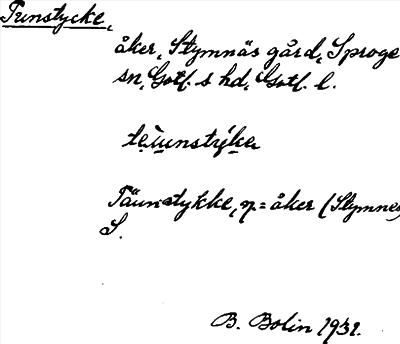 Tunstycke,
åker, Stymnäs gård, Sproge
sn, Gotl. s hd, Gotl. l.
Täunstykke, n = åker (Stymnes)
S.
B. Bolin 1931.